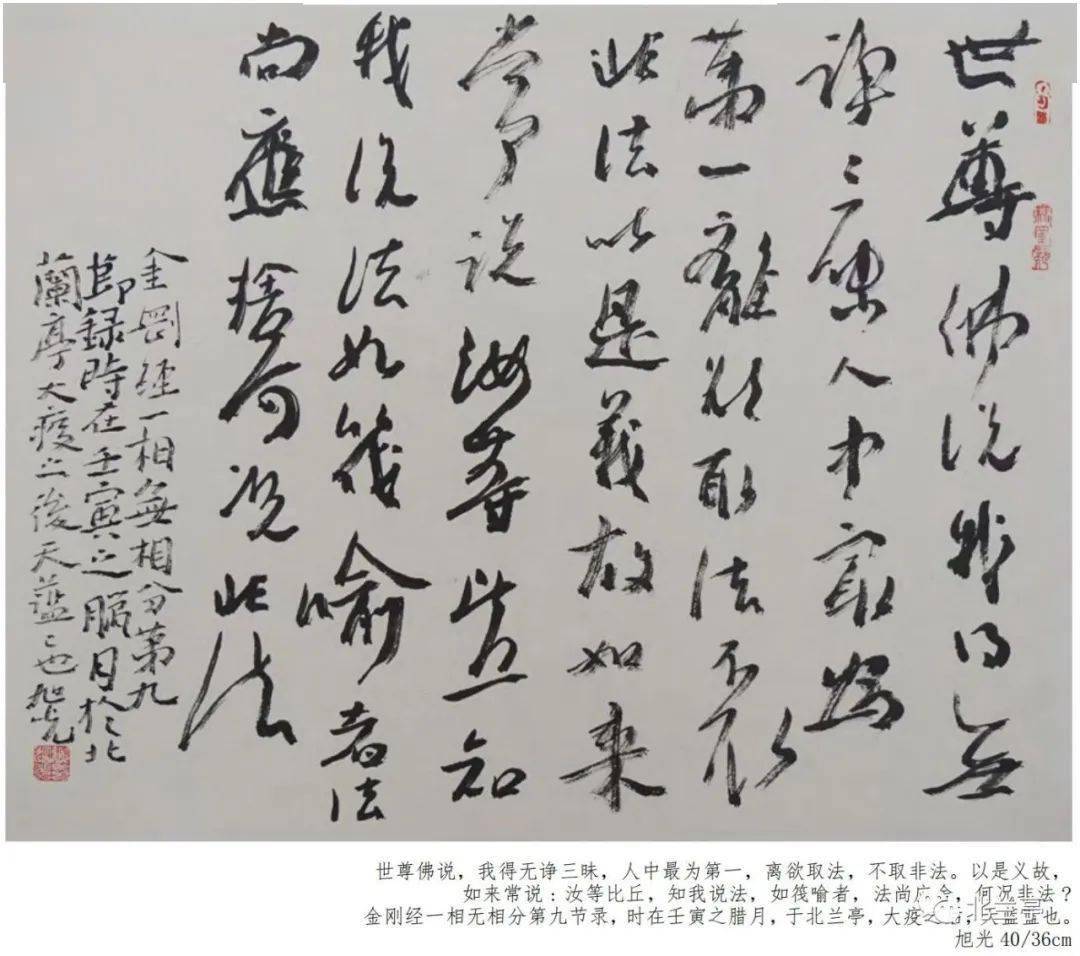 世尊佛说我得無
诤三昧人中最為
第一離欲取法不取
非法以是義故如来
常说汝等比丘知
我说法如筏喻者法
尚應捨何况非法
金罡经一相無相分第九
節録時在壬寅之臈月於北
蘭亭大疫之後天蓝〻也旭光
世尊佛说，我得无诤三昧，人中最为第一，离欲取法，不取非法。以是义故，
如来常说：汝等比丘，知我说法，如筏喻者，法尚应舍，何况非法？
金刚经一相无相分第九节录，时在壬寅之腊月，于北兰亭，大疫之后，天蓝蓝也。
旭光 40/36cm
北兰亭